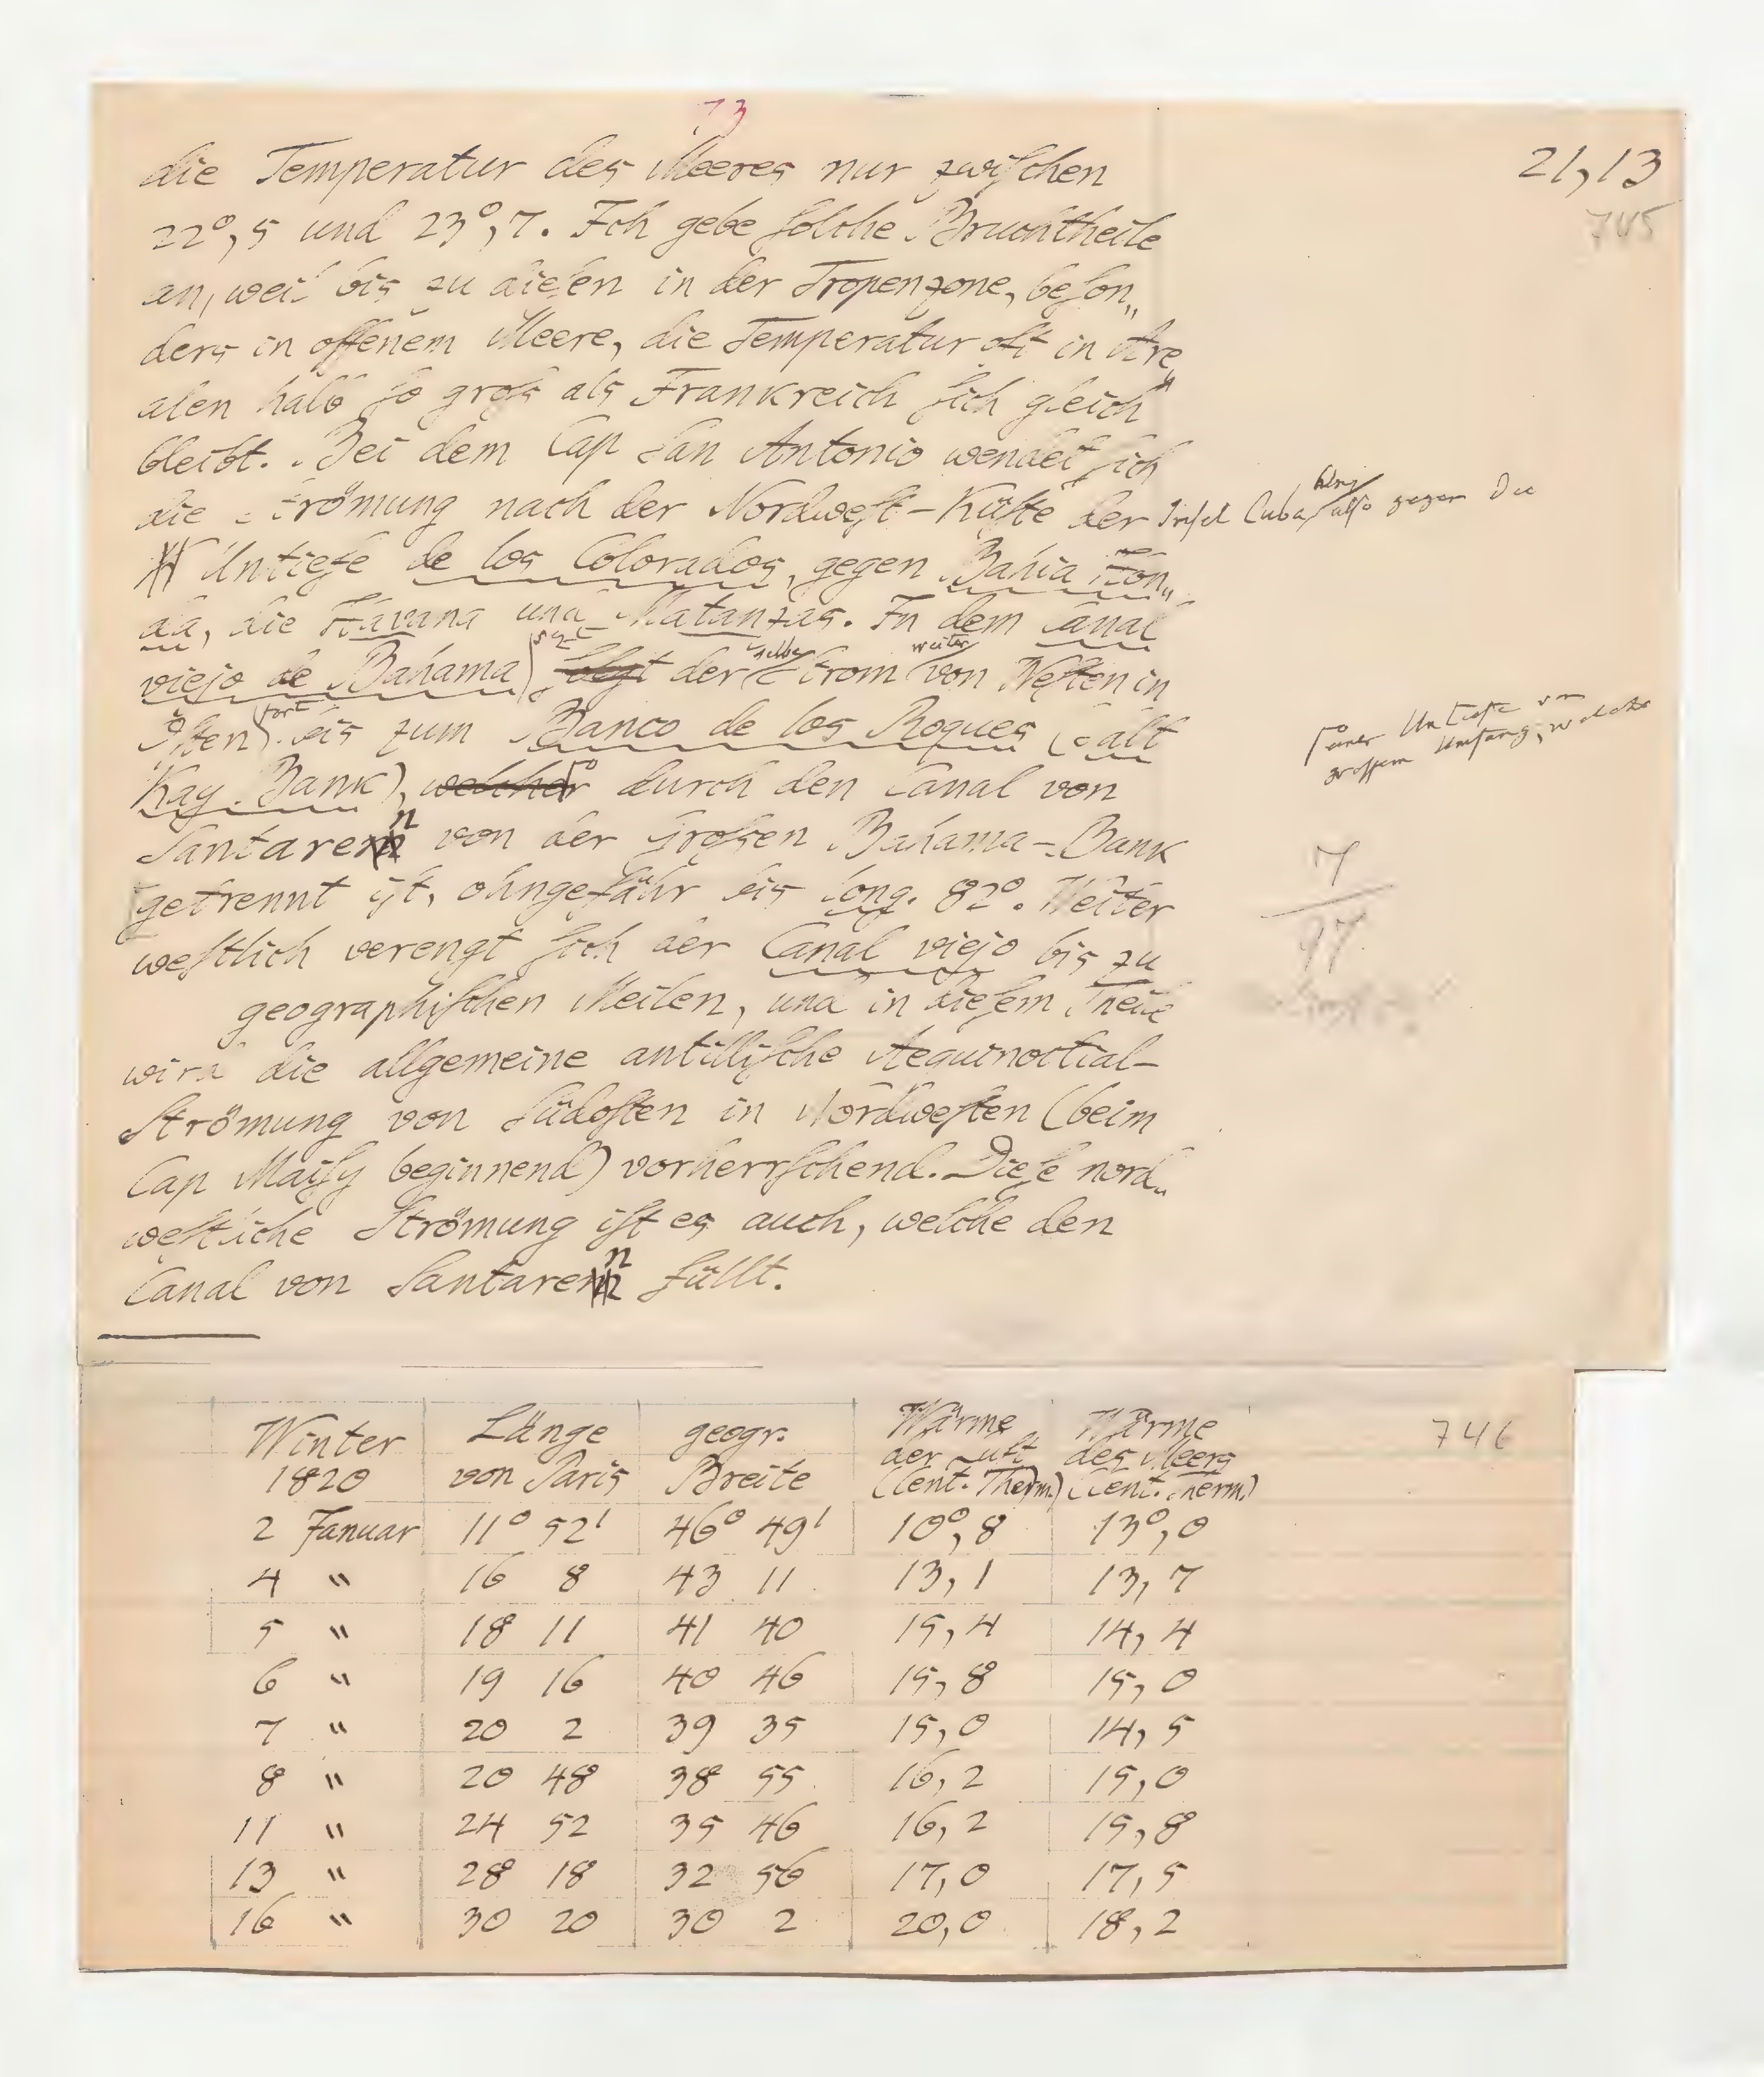 73
21,13
745
die Temperatur des Meeres nur zwiſchen
22°,5 und 23°,7. Ich gebe ſolche Bruchtheile
an, weil bis zu dieſen in der Tropenzone, beſon„
ders in offenem Meere, die Temperatur oft in Are„
alen halb ſo groſs als Frankreich ſich gleich
bleibt. Bei dem Cap San Antonio wendet ſich
die Strömung nach der Nordweſt-Küſte der Inſel Cuba hin, alſo gegen die
Untiefe de los Colorados, gegen Bahia Hon„
da, die Havana und Matanzas. In dem Canal
viejo de Bahama ſezt derſelbe Strom weiter von Weſten in
Oſten fort bis zum Banco de los Roques (Salt
Kay Bank), welcher durch den Canal von
einer Untiefe von
groſsem Umfang, welche
Santaren von der Groſsen Bahama-Bank
getrennt iſt, ohngefähr bis long. 82°. Weiter
weſtlich verengt ſich der Canal viejo bis zu
geographiſchen Meilen, und in dieſem Theile
wird die allgemeine antilliſche Aequinoctial-
Strömung von Südoſten in Nordweſten (beim
Cap Maiſy beginnend) vorherrſchend. Dieſe nord„
weſtliche Strömung iſt es auch, welche den
Canal von Santaren füllt.
746
Winter 1820 Länge von Paris geogr. Breite Wärme der Luft (Cent. Therm.) Wärme des Meers (Cent. Therm.)
2 Januar 11° 52' 46° 49' 10°,8 13°,0
4 " 16 8 43 11 13,1 13,7
5 " 18 11 41 40 15,4 14,4
6 " 19 16 40 46 15,8 15,0
7 " 20 2 39 35 15,0 14,5
8 " 20 48 38 55 16,2 15,0
11 " 24 52 35 46 16,2 15,8
13 " 28 18 32 56 17,0 17,5
16 " 30 20 30 2 20,0 18,2